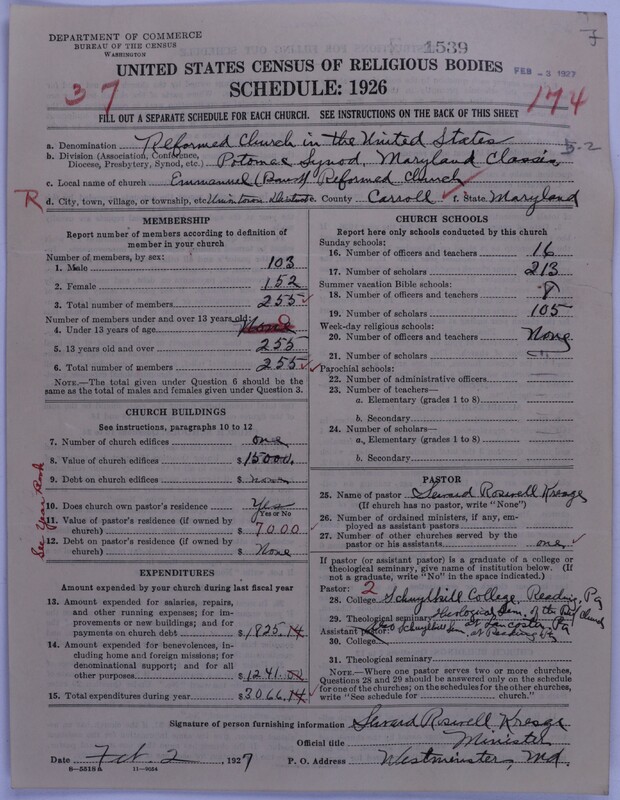 DEPARTMENT OF COMMERCE
BUREAU OF THE CENSUS
WASHINGTON
1539
UNITED STATES CENSUS OF RELIGIOUS BODIES
FEB -3 1927
SCHEDULE: 1926
37
174
FILL OUT A SEPARATE SCHEDULE FOR EACH CHURCH. SEE INSTRUCTIONS ON THE BACK OF THIS SHEET
a. Denomination Reformed Church in the United States
5-2
b. Division (Association, Conference, Diocese, Presbytery, Synod, etc.) Potomac Synod, Maryland Classis
c. Local name of church Emmanuel (Baust) Reformed Church
R
d. City, town, village, or township, etc. Uniontown District e. County Carroll f. State Maryland
MEMBERSHIP
Report number of members according to definition of
member in your church
Number of members, by sex:
1. Male 103
2. Female 152
3. Total number of members 255
Number of members under and over 13 years old:
4. Under 13 years of age None
5. 13 years old and over 255
6. Total number of members 255
NOTE.—The total given under Question 6 should be
same as the total of males and females given under Question 3.
CHURCH BUILDINGS
See instructions, paragraphs 10 to 12
7. Number of church edifices one
8. Value of church edifices $15000.
9. Debt on church edifices $ none
10. Does church own pastor's residence Yes
Yes or No
11. Value of pastor's residence (if owned by
church) $ 7000
12. Debt on pastor's residence (if owned by
church) $ None
See Year Book
EXPENDITURES
Amount expended by your church during last fiscal year
13. Amount expended for salaries, repairs,
and other running expenses; for im-
provements or new buildings; and for
payments on church debt $1825.14
14. Amount expended for benevolences, in-
cluding home and foreign missions; for
denominational support; and for all
other purposes $1241.00
15. Total expenditures during year $3066.14
CHURCH SCHOOLS
Report here only schools conducted by this church
Sunday schools:
16. Number of officers and teachers 16
17. Number of scholars 213
Summer vacation Bible schools:
18. Number of officers and teachers 8
19. Number of scholars 105
Week-day religious schools:
20. Number of officers and teachers None
21. Number of scholars
Parochial schools:
22. Number of administrative officers
23. Number of teachers—
a. Elementary (grades 1 to 8)
b. Secondary
24. Number of scholars—
a. Elementary (grades 1 to 8)
b. Secondary
PASTOR
25. Name of pastor Seward Roswell Kresge
(If church has no pastor, write "None")
26. Number of ordained ministers, if any, em-
ployed as assistant pastors
27. Number of other churches served by the
pastor or his assistants one
If pastor (or assistant pastor) is a graduate of a college or
theological seminary, give name of institution below. (If
not a graduate, write "No" in the space indicated.)
Pastor: 2
28. College Schuylkill College, Reading, Pa
29. Theological seminary Theological Sem. of the Ref Church
at Lancaster, Pa
Assistant pastor: Schuylkill Sem. at Reading Pa
30. College
31. Theological seminary
NOTE.—Where one pastor serves two or more churches,
Questions 28 and 29 should be answered only on the schedule
for one of the churches; on the schedules for the other churches,
write "See schedule for church."
Signature of person furnishing information Seward Roswell Kresge
Official title Minister
Date Feb. 2, 1927 P. O. Address Westminster, Md.
8—5518a 11—9064